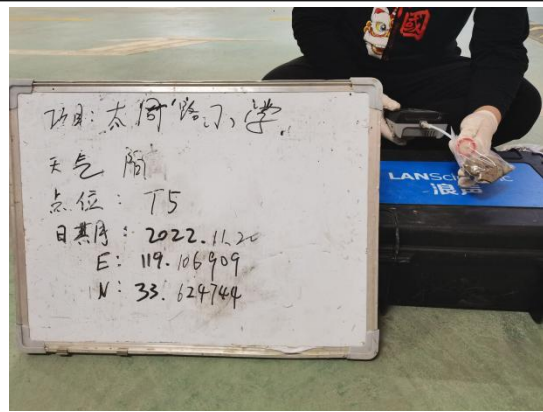 项目: 太周路小学
天气 阴
点位: T5
日期: 2022.11.20
E: 119.106909
N: 33.624744
國
LANScientific
浪声